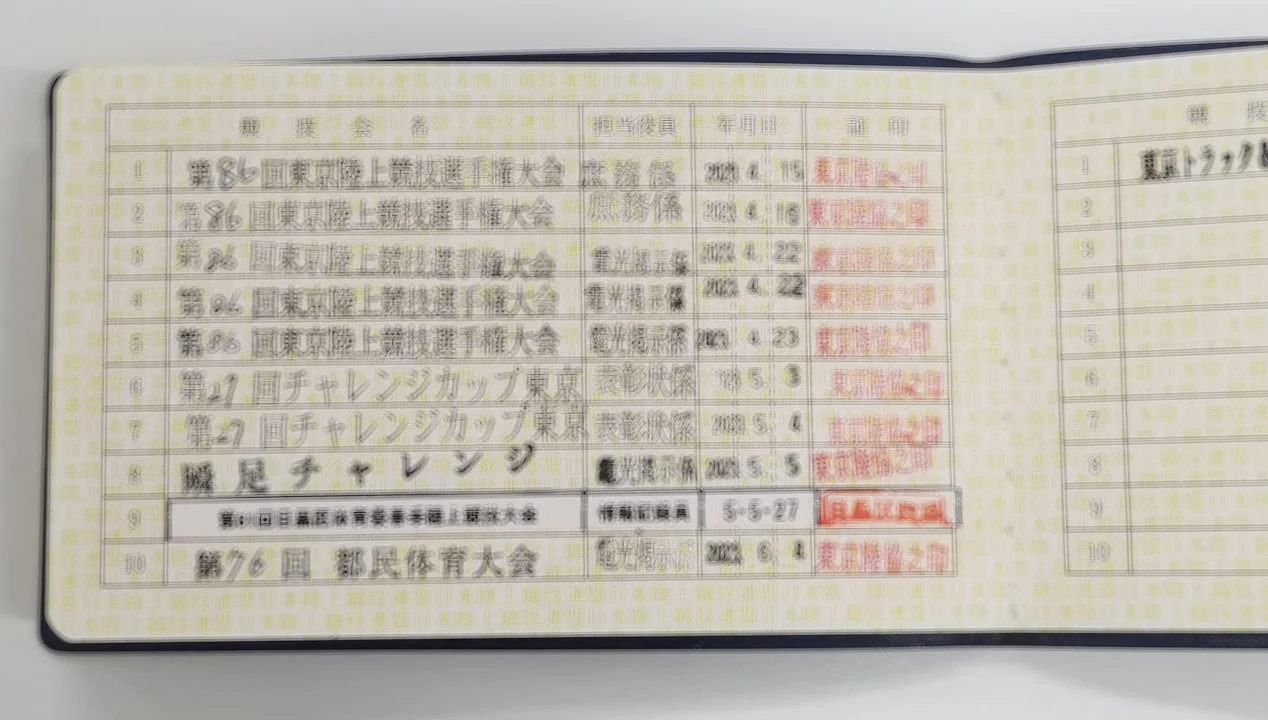 競技会名 担当役員 年月日 証印
1 第86回東京陸上競技選手権大会 庶務係 2023. 4. 15 東京陸協之印
2 第86回東京陸上競技選手権大会 庶務係 2023. 4. 16 東京陸協之印
3 第86回東京陸上競技選手権大会 電光掲示係 2023. 4. 22 東京陸協之印
4 第86回東京陸上競技選手権大会 電光掲示係 2023. 4. 22 東京陸協之印
5 第86回東京陸上競技選手権大会 電光掲示係 2023. 4. 23 東京陸協之印
6 第27回チャレンジカップ東京 表彰状係 5. 3 東京陸協之印
7 第27回チャレンジカップ東京 表彰状係 2023. 5. 4 東京陸協之印
8 瞬足チャレンジ 電光掲示係 2023. 5. 5 東京陸協之印
9 5・5・27
10 第76回 都民体育大会 電光掲示係 2023. 6. 4 東京陸協之印
競技
1 東京トラック&
2
3
4
5
6
7
8
9
10